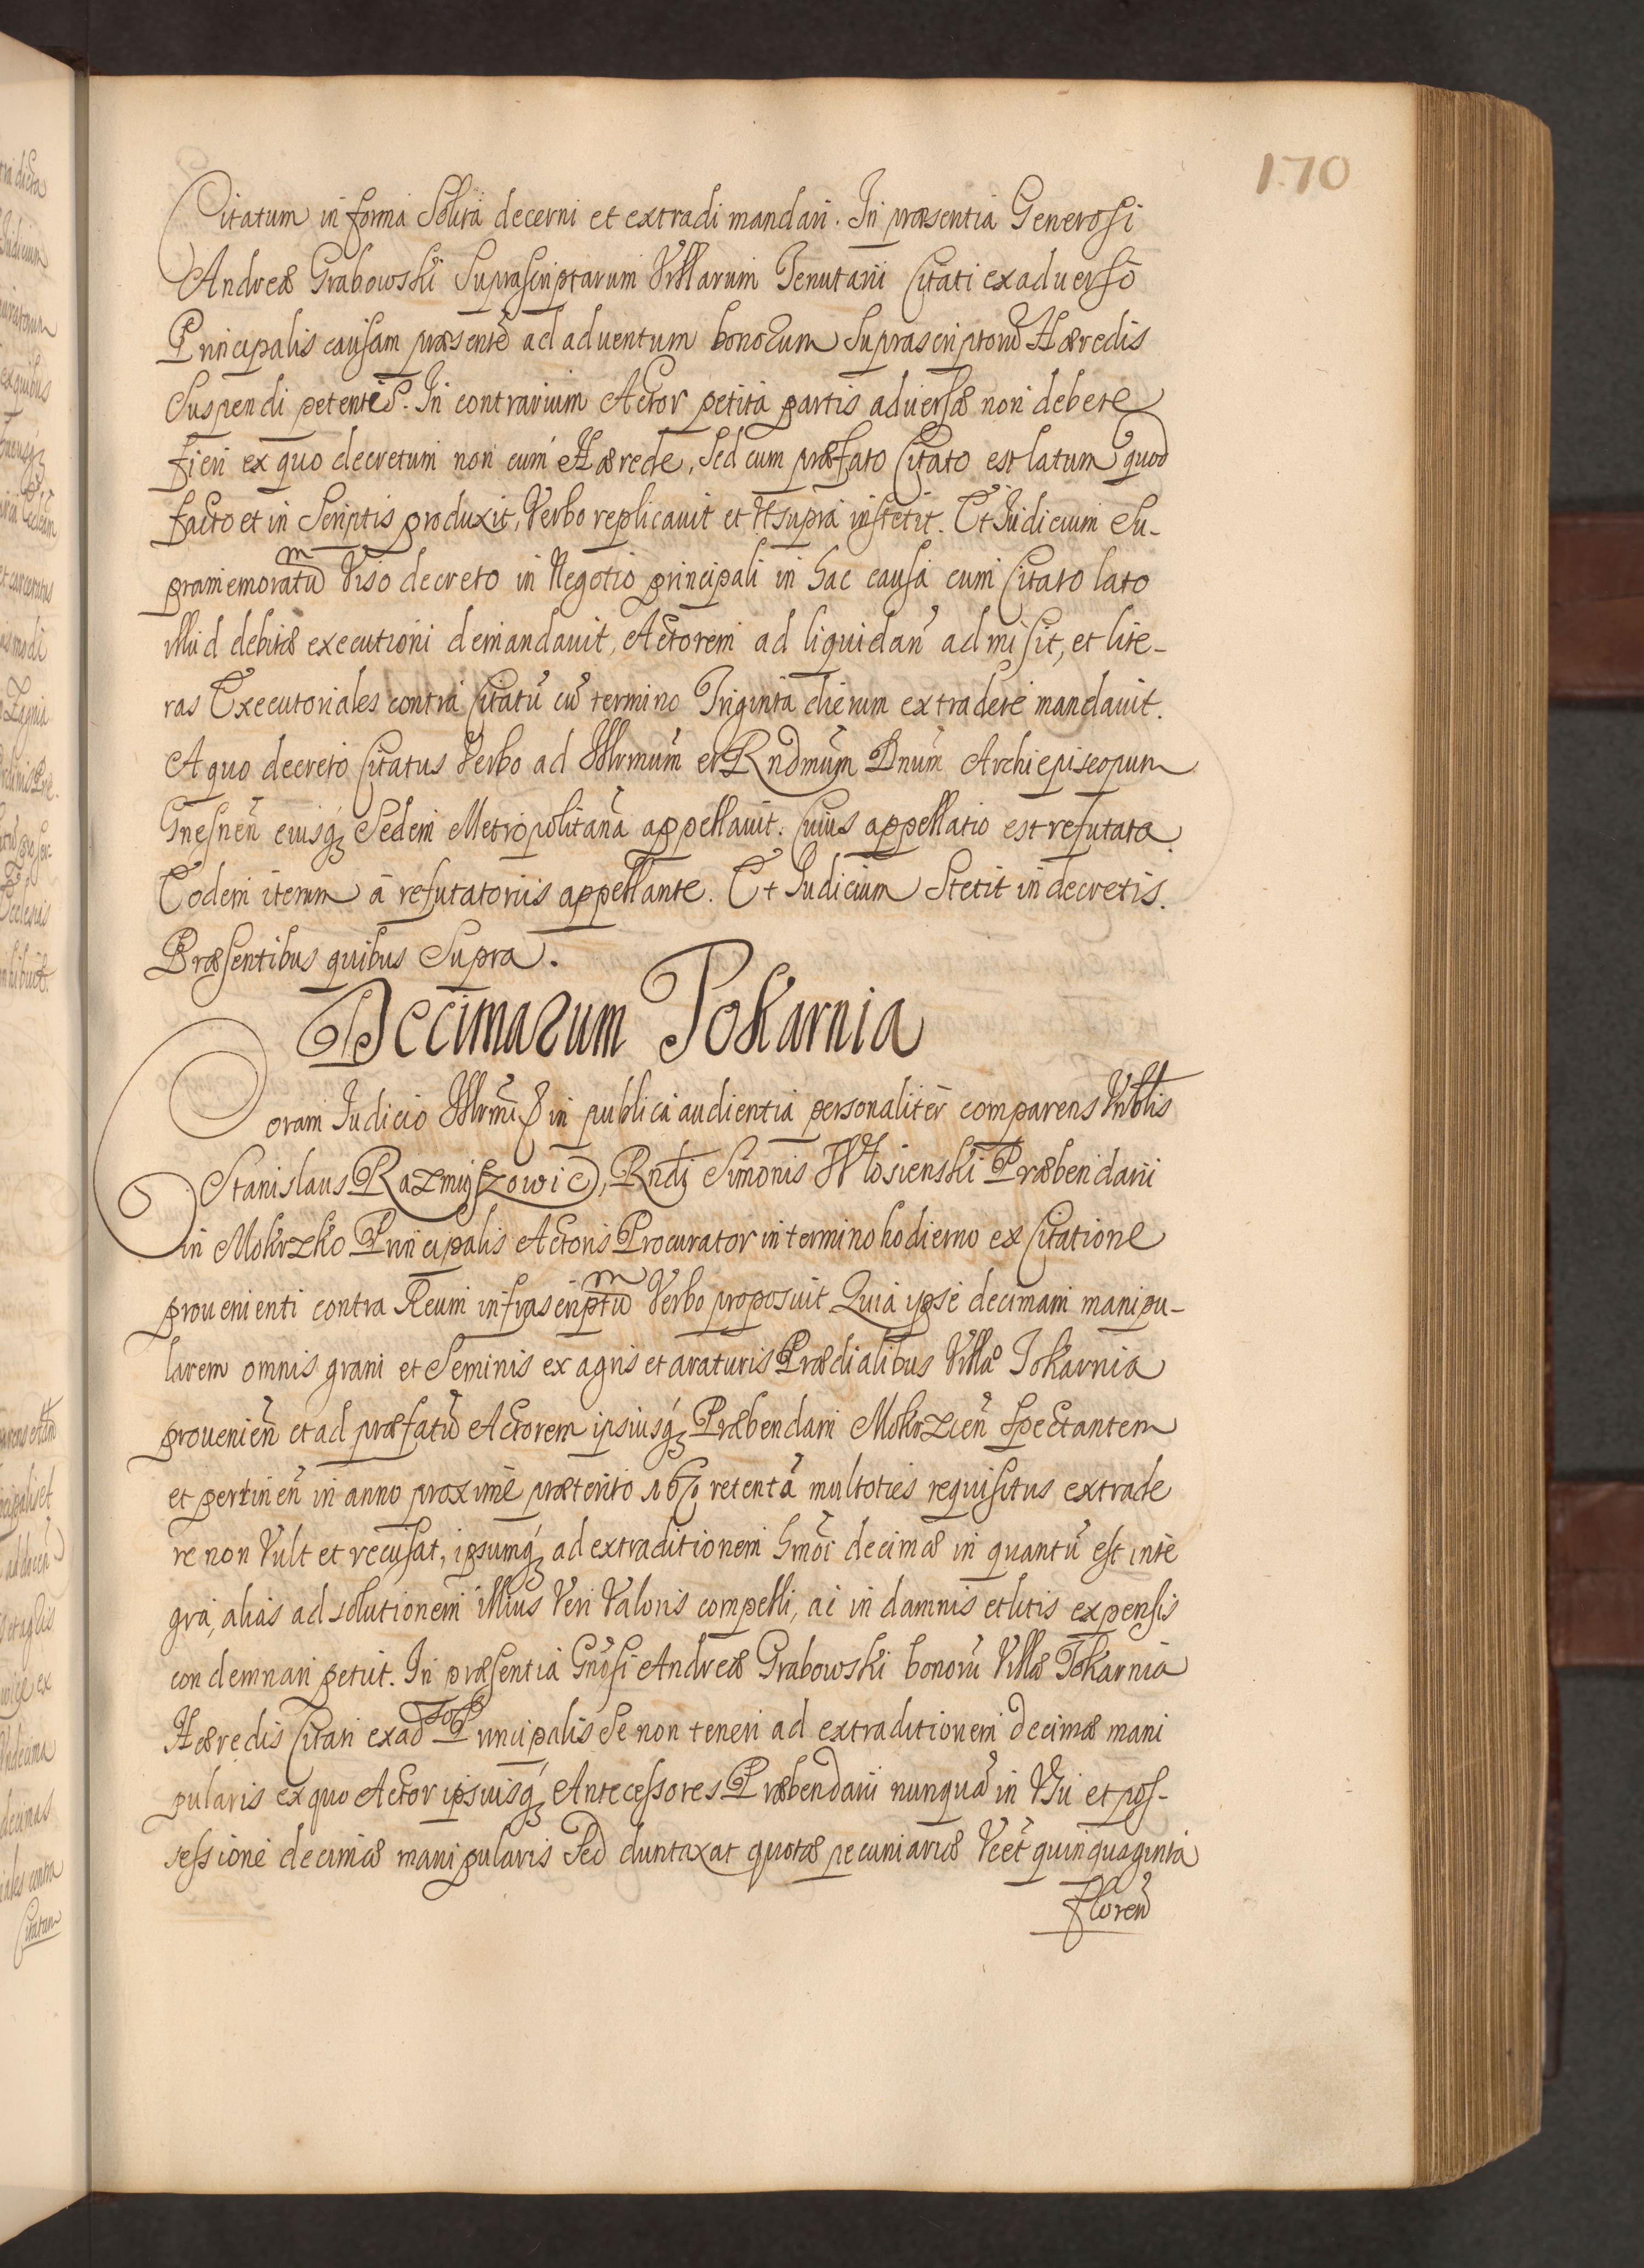 170
Citatum in forma Solita decerni et extradi mandari. In præsentia Generosi
Andreæ Grabowski Suprascriptarum Villarum Tenutarii Citati ex aduerso
Principalis causam præsentē ad aduentum bonorum Suprascriptorū Hæredis
Suspendi petentis. In contrarium Actor petita partis aduersæ non debere
fieri ex quo decretum non cum Hærede, Sed cum præfato Citato est latum quod
facto et in Scriptis produxit, Verbo replicauit et Vt supra institit. Et Iudicium Su-
pramemoratūm Viso decreto in Negotio principali in hac causa cum Citato lato
illud debitæ executioni demandauit, Actorem ad liquidan̄ admisit, et lite-
ras Executoriales contra Citatū cū termino Triginta dierum extradere mandauit.
A quo decreto Citatus Verbo ad Illrmum̄ et Rndmum̄ Dnum̄ Archiepiscopum
Gnesnen̄ eiusq́; Sedem Metropolitanā appellauit. Cuius appellatio est refutata
Eodem iterum à refutatoriis appellante. Et Iudicium Stetit in decretis.
Præsentibus quibus Supra.
Decimarum Tokarnia
Coram Iudicio Illrmi & in publica audientia personalitèr comparens Nblis
Stanislaus Razmiszowic, Rndi Simonis Włosienski Præbendarii
in Mokrzko Principalis Actoris Procurator in termino hodierno ex Citatione
prouenienti contra Reum infrascriptūm Verbo proposuit Quia ipse decimam manipu-
larem omnis grani et Seminis ex agris et araturis Prædialibus Villæ Tokarnia
prouenien̄ et ad præfatū Actorem ipsiusq́; Præbendam Mokrzcen̄ Spectantem
et pertinen̄ in anno proximè præterito 1671 retentā multoties requisitus extrade
re non Vult et recusat, ipsumq́; ad extraditionem hmōi decimæ in quantū est inte
gra, alias ad solutionem illius Veri Valoris compelli, ac in damnis et litis expensis
condemnari petiit. In præsentia Gnōsi Andreæ Grabowski bonorū Villæ Tokarnia
Hæredis Citati ex adūso Principalis Se non teneri ad extraditionem decimæ mani
pularis ex quo Actor ipsiusq́; Antecessores Præbendarii nunquā in Vsu et pos-
sessione decimæ manipularis Sed duntaxat quotæ pecuniariæ Vcet̄ quinquaginta
floren̄